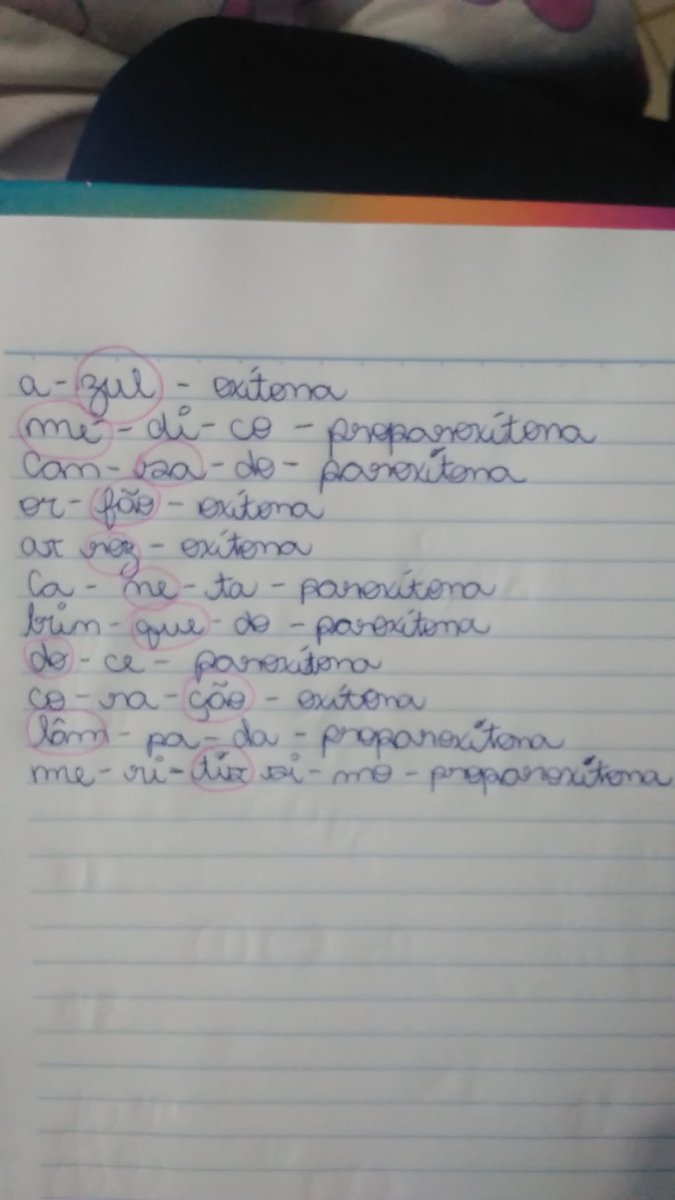 a-zul - oxítona
mé-di-co - proparoxítona
Can-sa-do - paroxítona
or-fão - oxítona
ar roz - oxítona
Ca-ne-ta - paroxítona
brin-que-do - paroxítona
do-ce - paroxítona
co-ra-ção - oxítona
lâm-pa-da - proparoxítona
me-ri-tís si-mo - proparoxítona